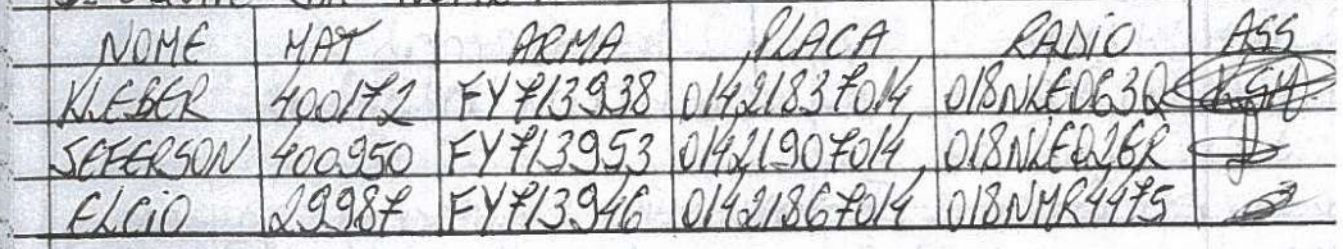 NOME MAT ARMA PLACA RADIO ASS
KLEBER 400172 FY713938 01421837014 018NLED63Q
JEFERSON 400950 FY713953 01421907014 018NLED26R
ELCIO 29987 FY713946 01421867014 018NMR4475